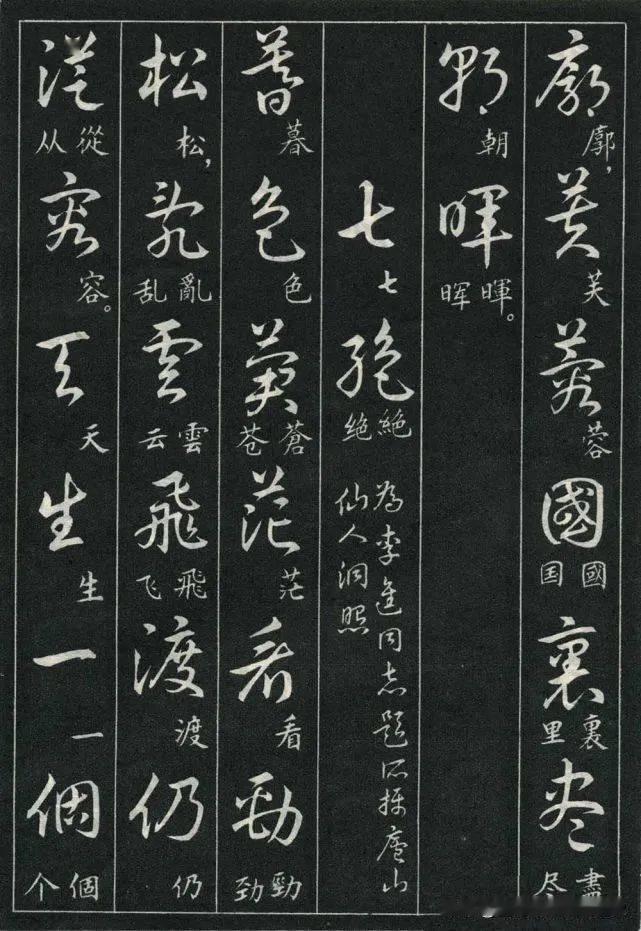 廓芙蓉國裏盡
廓，芙蓉國国裏里盡尽
朝暉
朝暉。晖
七絶
七絶绝
為李進同志題所攝廬山
仙人洞照
暮色蒼茫看勁
暮色蒼苍茫看勁劲
松亂雲飛渡仍
松，亂乱雲云飛飞渡仍
從容天生一個
從从容。天生一個个